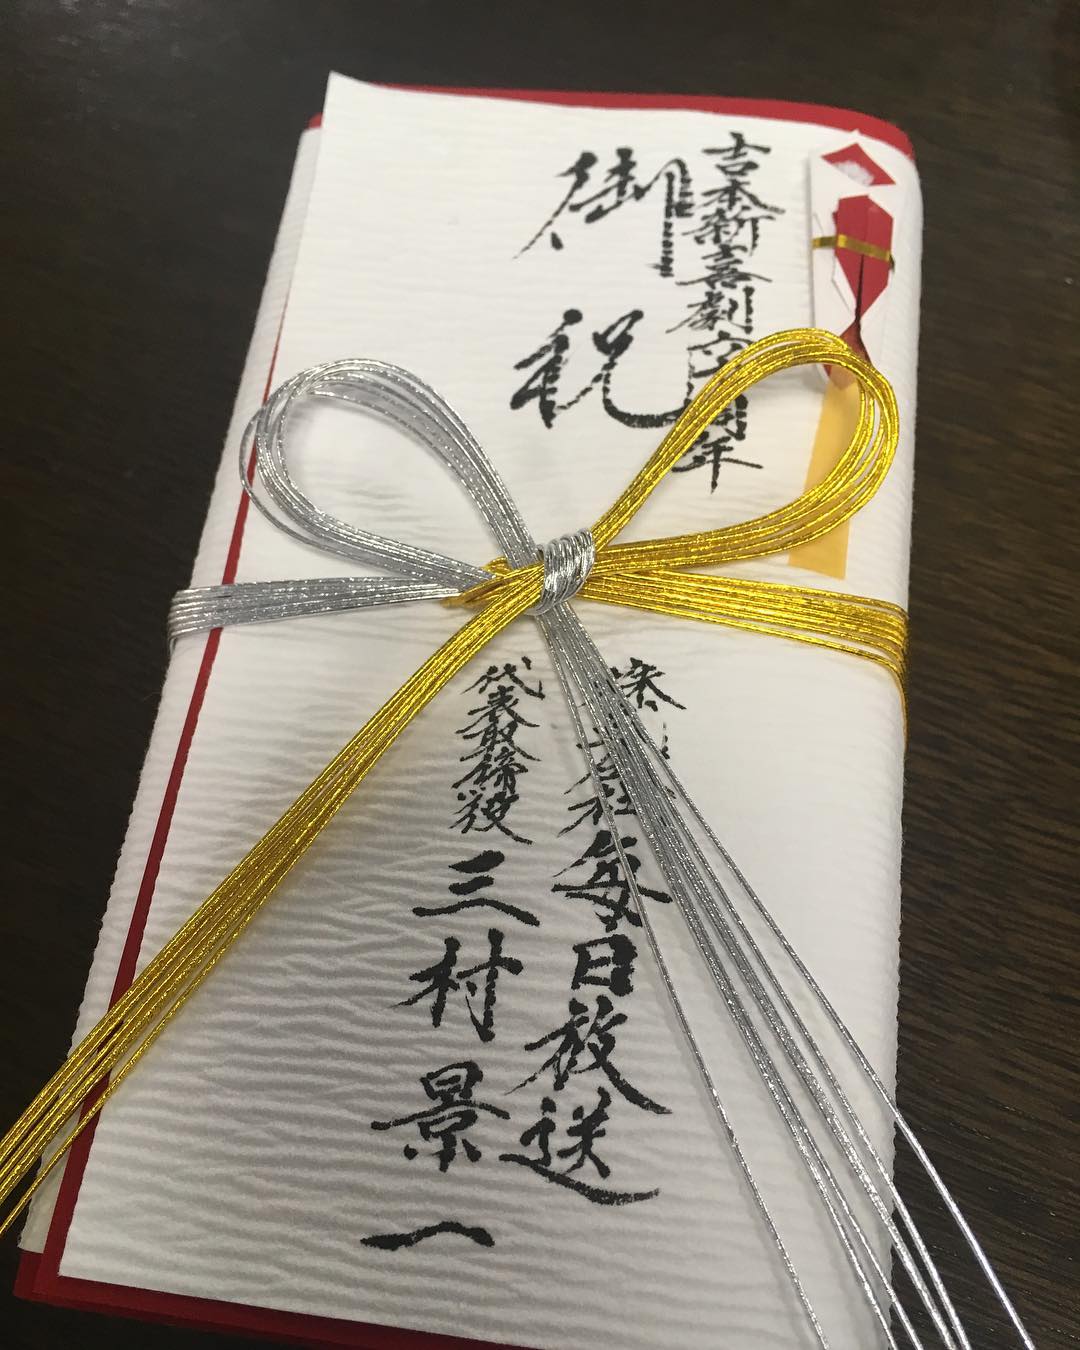 吉本新喜劇六〇周年
御祝
株式会社毎日放送
代表取締役三村景一